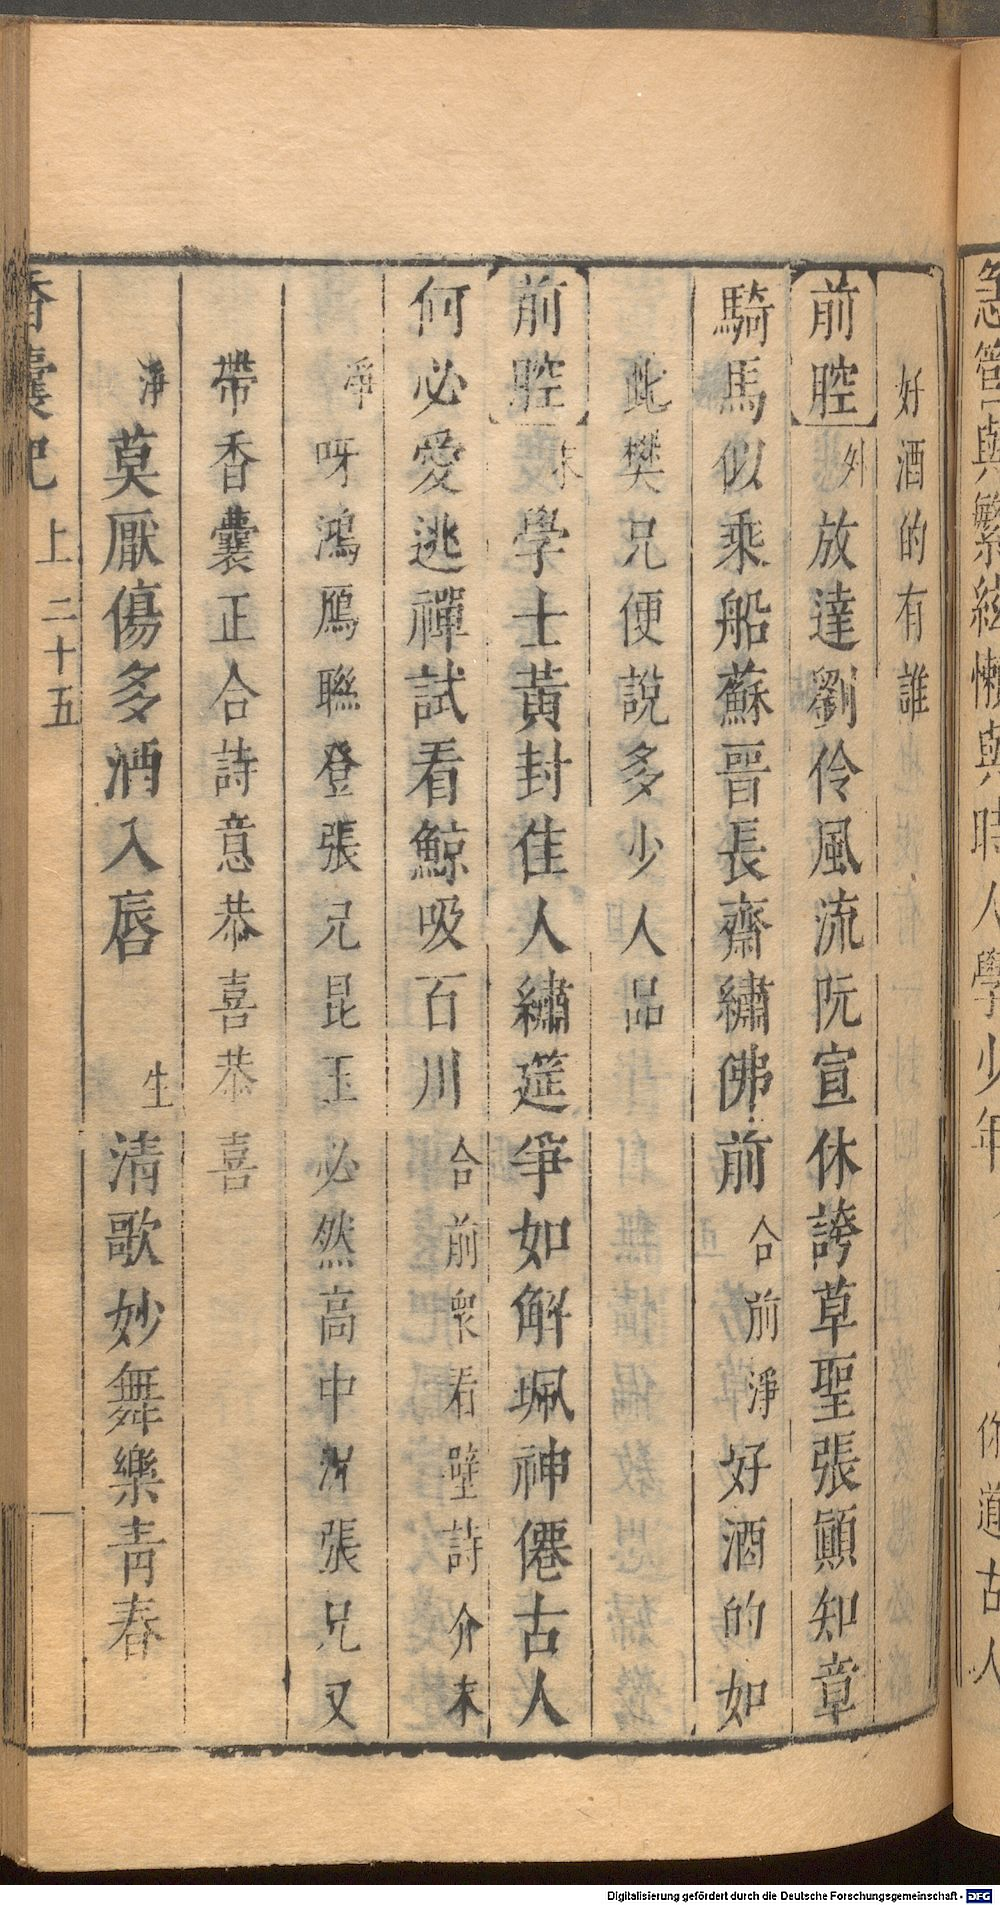 好酒的有誰
前腔 外 放達劉伶風流阮宣休誇草聖張顚知章
騎馬似乘船蘇晉長齋繡佛前 合前 淨 好酒的如
此樊兄便說多少人品
前腔 末 學士黃封佳人繡筵爭如解珮神僊古人
何必愛逃禪試看鯨吸百川 合前 衆看壁詩介 末
淨 呀鴻鴈聯登張兄昆玉必然高中 張兄又
帶香囊正合詩意恭喜恭喜
淨 莫厭傷多酒入唇 生 清歌妙舞樂靑春
香囊記 上 二十五
急管與繁絃懶與時人學少年
你道古人
Digitalisierung gefördert durch die Deutsche Forschungsgemeinschaft - DFG